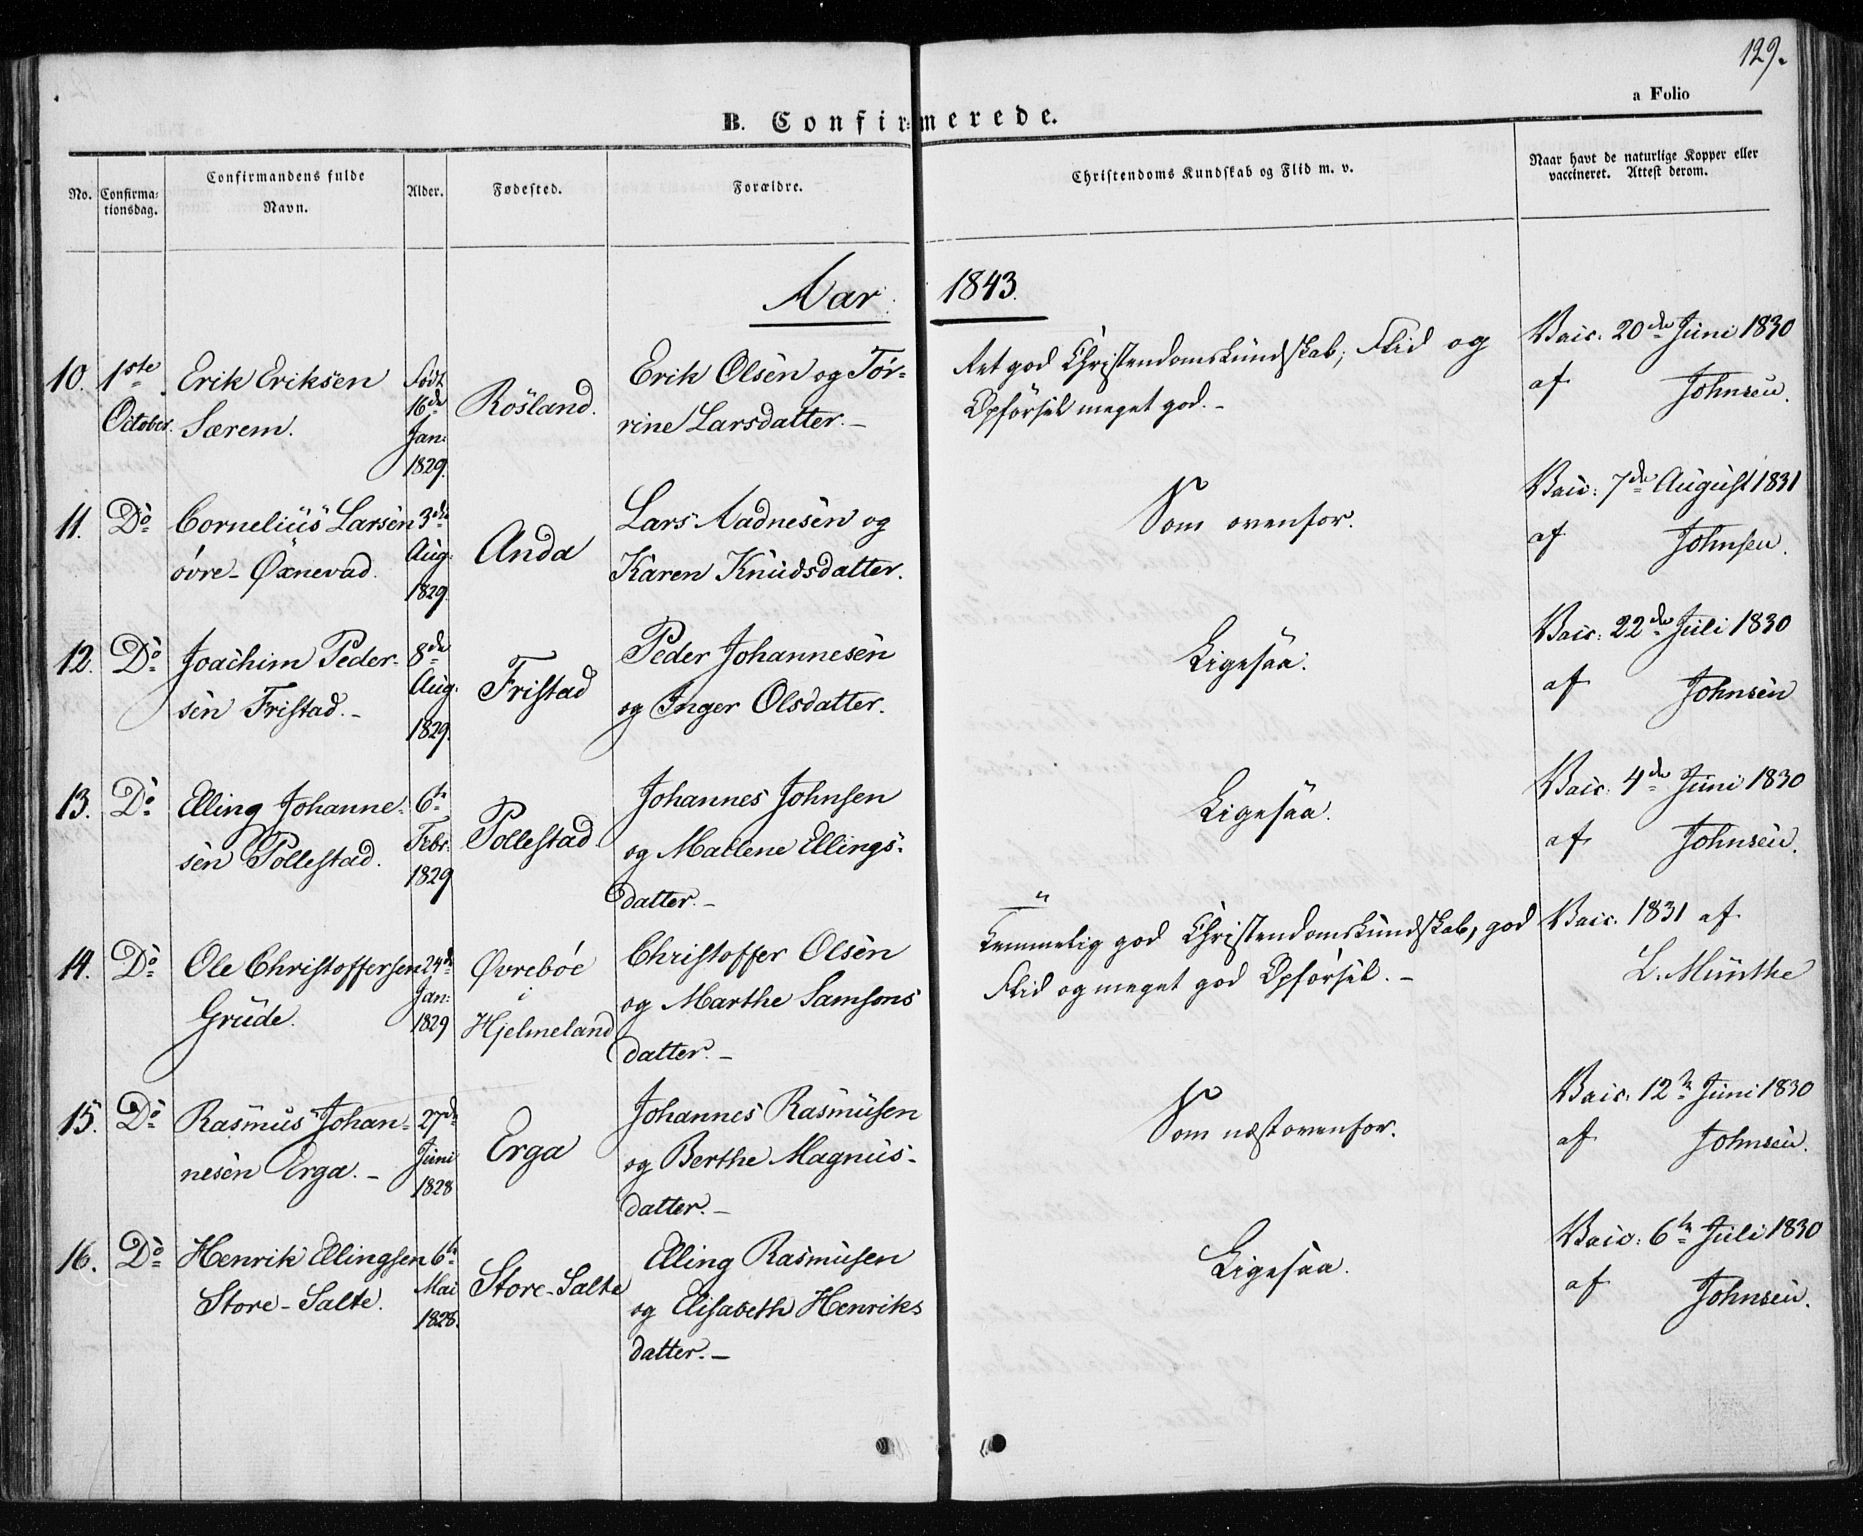 129.
a Folio
B. Confirmerede.
No.
Confirma-
tionsdag.
Confirmandens fulde
Navn.
Alder.
Fødested.
Forældre.
Christendoms Kundskab og Flid m. v.
Naar havt de naturlige Kopper eller
vaccineret. Attest derom.
Aar 1843.
10.
1ste
October.
Erik Eriksen
Særem.
Født
16de
Jan:
1829.
Rosland.
Erik Olsen og Tor-
rine Larsdatter. –
Ret god Christendomskundskab, Flid og
Opførsel meget god. –
Vacc: 20de Juni 1830
af Johnsen.
11.
Do
Cornelius Larsen
øvre-Øxnevad.
3die
Aug:
1829.
Anda
Lars Aadnesen og
Karen Knudsdatter.
Som ovenfor.
Vacc: 7de August 1831
af Johnsen.
12.
Do
Joachim Peder-
sen Fristad. –
8de
Aug:
1829.
Fristad
Peder Johannesen
og Inger Olsdatter.
Ligesaa.
Vacc: 22de Juli 1830
af Johnsen
13.
Do
Elling Johanne-
sen Pollestad.
6te
Febr:
1829
Pollestad
Johannes Johnsen
og Mallene Ellings-
datter. –
Ligesaa.
Vacc: 4de Juni 1830
af Johnsen.
14.
Do
Ole Christoffersen
Grude.
24de
Jan:
1829
Øvrebøe
i
Hjelmeland
Christoffer Olsen
og Marthe Samsons
datter. –
Temmelig god Christendomskundskab, god
Flid og meget god Opførsel. –
Vacc. 1831 af
L. Münthe
15.
Do
Rasmus Johan-
nesen Erga. –
27de
Juni
1828
Erga
Johannes Rasmusen
og Berthe Magnus-
datter. –
Som næstovenfor.
Vacc: 12te Juni 1830
af Johnsen.
16.
Do
Henrik Ellingsen
Store-Salte.
6te
Mai
1828.
Store-Salte
Elling Rasmusen
og Elisabeth Henriks
datter. –
Ligesaa.
Vacc: 6te Juli 1830
af Johnsen.